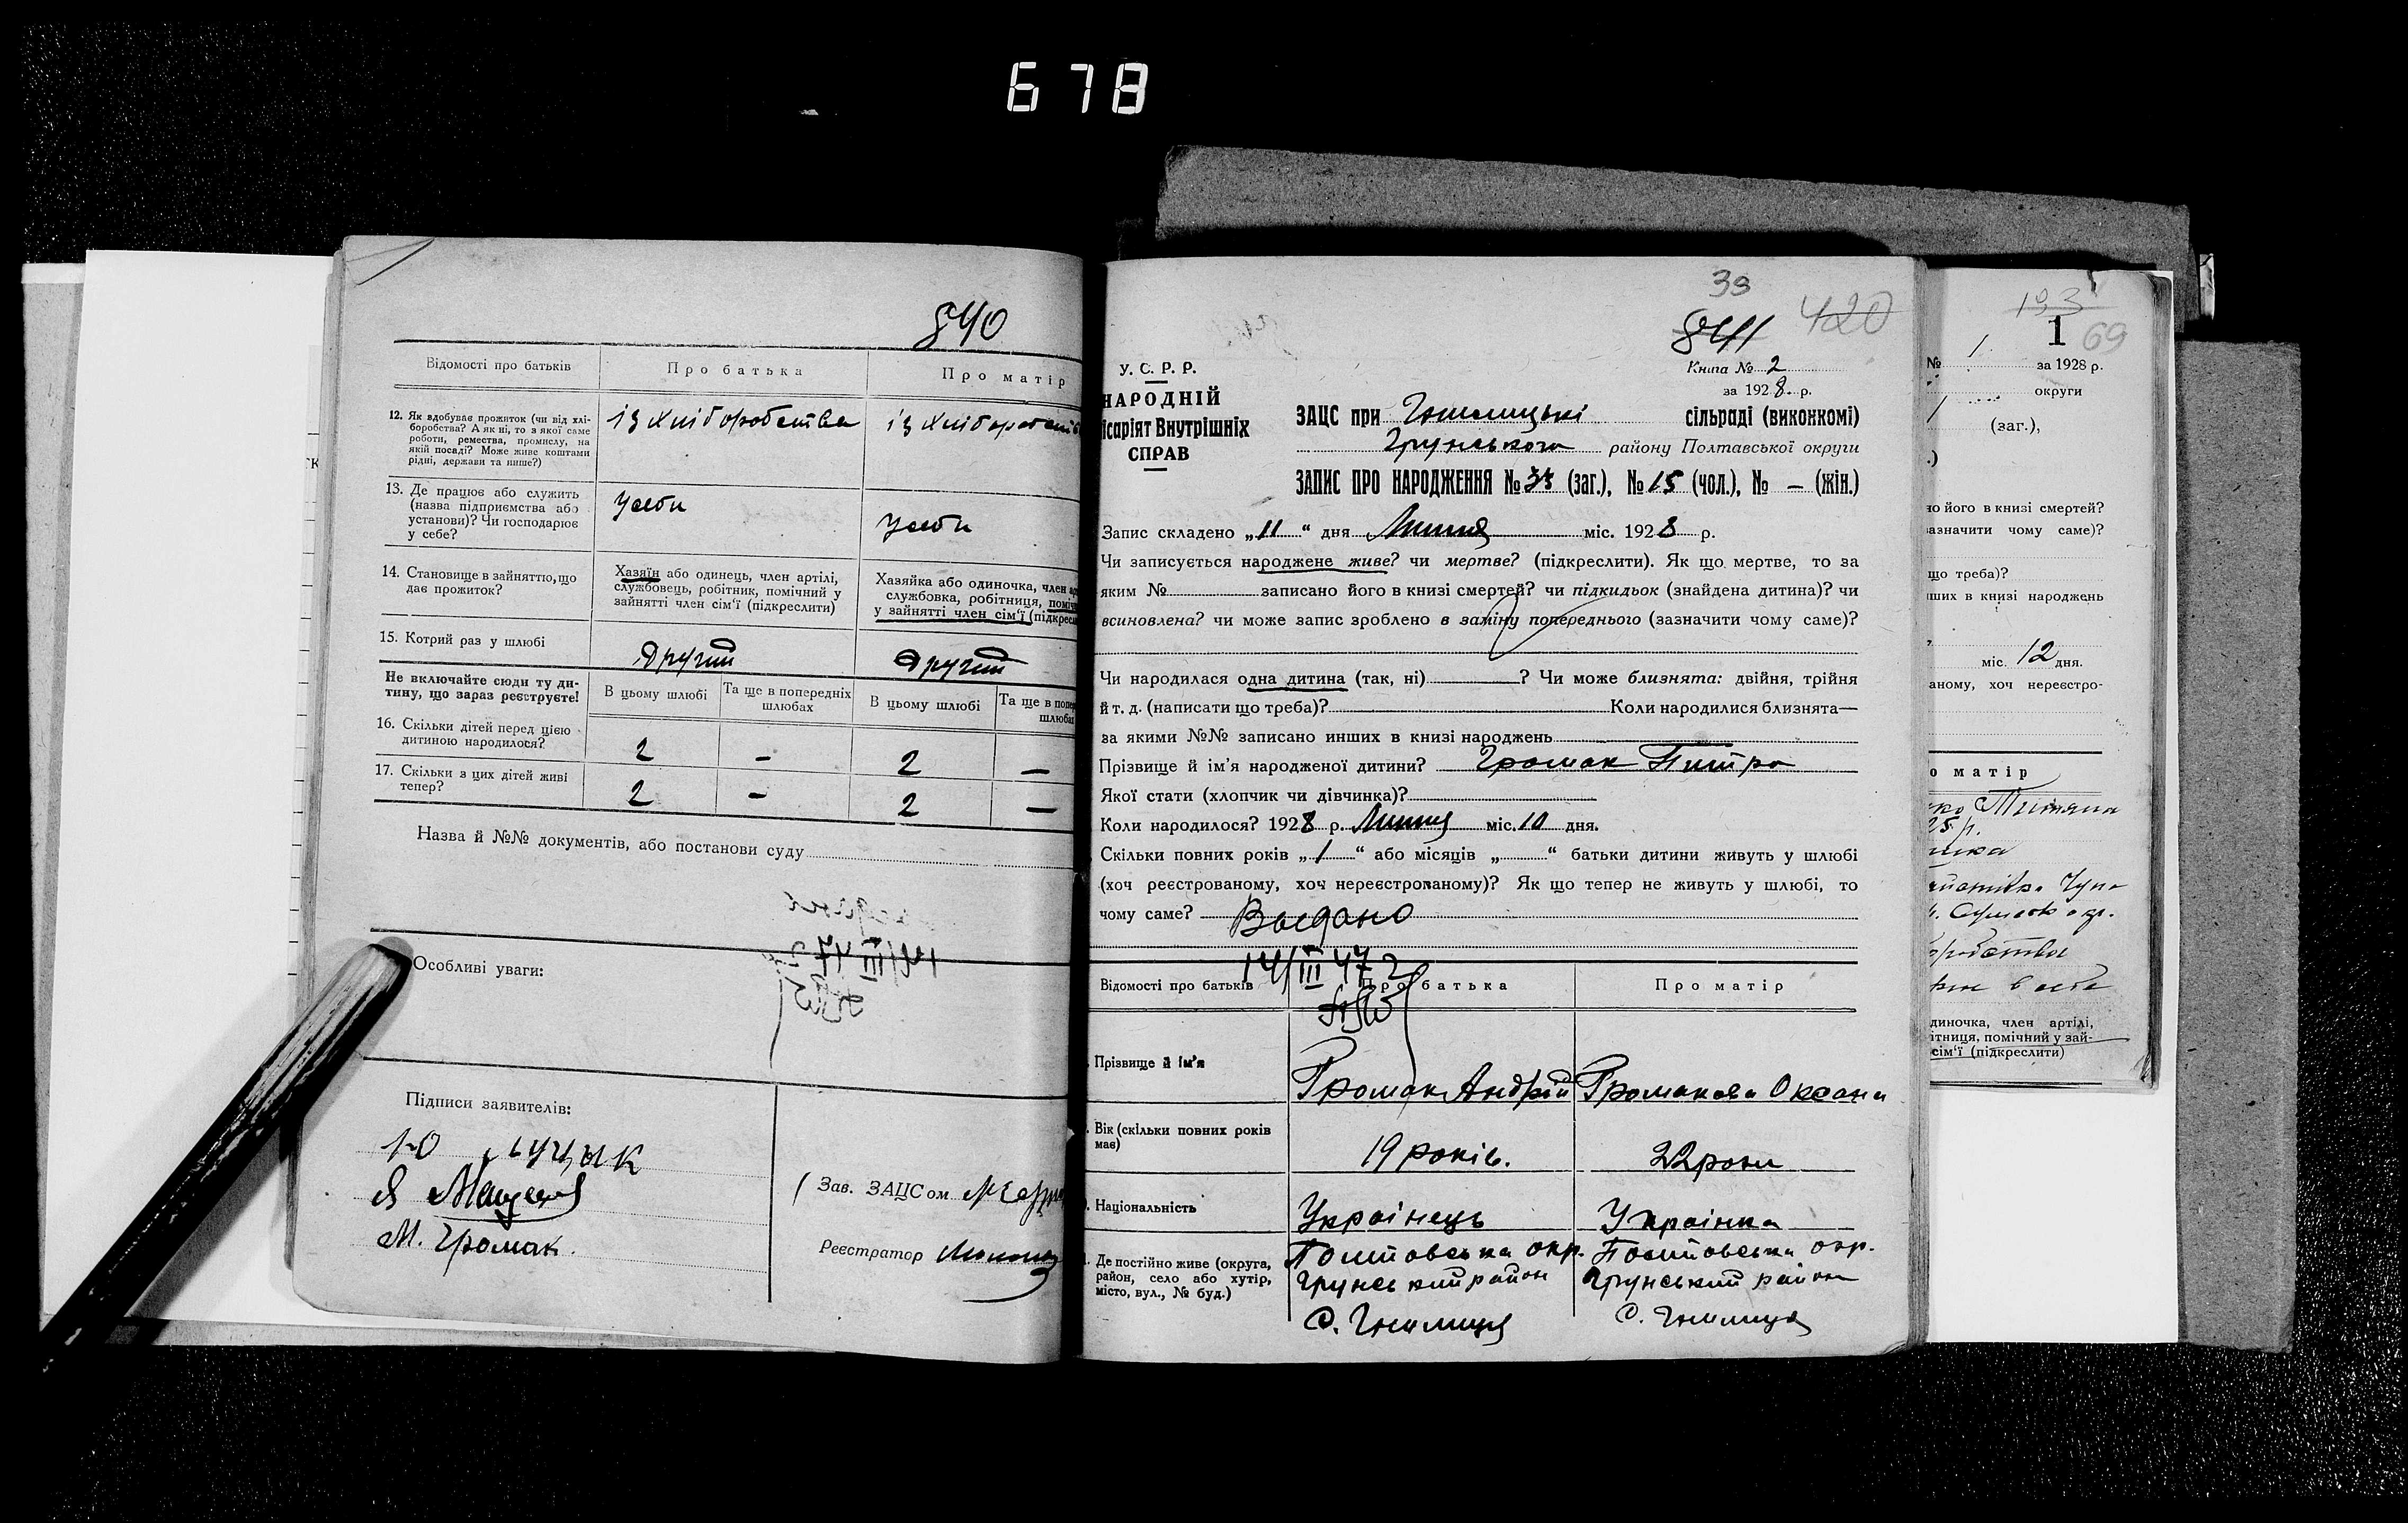 678
840
Відомості про батьків
Про батька
Про матір
12. Як здобуває прожиток (чи від хлі-
боробства? А як ні, то з якої саме
роботи, ремества, промислу, на
якій посаді? Може живе коштами
рідні, держави та инше?)
із хліборобства
із хліборобств
13. Де працює або служить
(назва підприємства або
установи)? Чи господарює
у себе?
у себи
у себи
14. Становище в зайняттю, що
дає прожиток?
Хазяїн або одинець, член артілі,
службовець, робітник, помічний у
зайнятті член сім'ї (підкреслити)
Хазяйка або одиночка, член
службовка, робітниця, поміч
у зайнятті член сім'ї (підкресл
15. Котрий раз у шлюбі
другий
другий
Не включайте сюди ту ди-
тину, що зараз реєструєте!
В цьому шлюбі
Та ще в попередніх
шлюбах
В цьому шлюбі
Та ще в попер
шлюбах
16. Скільки дітей перед цією
дитиною народилося?
2 - 2 -
17. Скільки з цих дітей живі
тепер?
2 - 2 -
Назва й №№ документів, або постанови суду
Особливі уваги:
Підписи заявителів:
М. Громак.
Зав. ЗАЦСом
Реєстратор
33
841 420
У. С. Р. Р.
НАРОДНІЙ
ісаріят Внутрішніх
СПРАВ
Книга № 2
за 1928 р.
ЗАЦС при Гнилицькі сільраді (виконкомі)
Грунського району Полтавської округи
ЗАПИС ПРО НАРОДЖЕННЯ № 33 (заг.), № 15 (чол.), № – (жін.)
Запис складено „11“ дня Липня міс. 1928 р.
Чи записується народжене живе? чи мертве? (підкреслити). Як що мертве, то за
яким № записано його в книзі смертей? чи підкидьок (знайдена дитина)? чи
всиновлена? чи може запис зроблено в заміну попереднього (зазначити чому саме)?
Чи народилася одна дитина (так, ні) ? Чи може близнята: двійня, трійня
й т. д. (написати що треба)? Коли народилися близнята—
за якими №№ записано инших в книзі народжень
Прізвище й ім'я народженої дитини? Громак Питро
Якої стати (хлопчик чи дівчинка)?
Коли народилося? 1928 р. Липня міс. 10 дня.
Скільки повних років „1“ або місяців „ “ батьки дитини живуть у шлюбі
(хоч реєстрованому, хоч нереєстрованому)? Як що тепер не живуть у шлюбі, то
чому саме? Выдано
14/III 47 г
Відомості про батьків
Про батька
Про матір
Прізвище й ім'я
Громак Андрій
Громакова Оксана
Вік (скільки повних років
має)
19 років.
22 роки
Національність
Українець
Українка
Де постійно живе (округа,
район, село або хутір,
місто, вул., № буд.)
Полтовська окр.
Грунський район
с. Гнилиця
Полтовська окр.
Грунський район
с. Гнилиця
193
1 69
№ 1 за 1928 р.
округи
(заг.),
о його в книзі смертей?
азначити чому саме)?
що треба)?
нших в книзі народжень
міс. 12 дня.
аному, хоч нереєстро-
о матір
25 р.
диночка, член артілі,
ітниця, помічний у зай-
сім'ї (підкреслити)